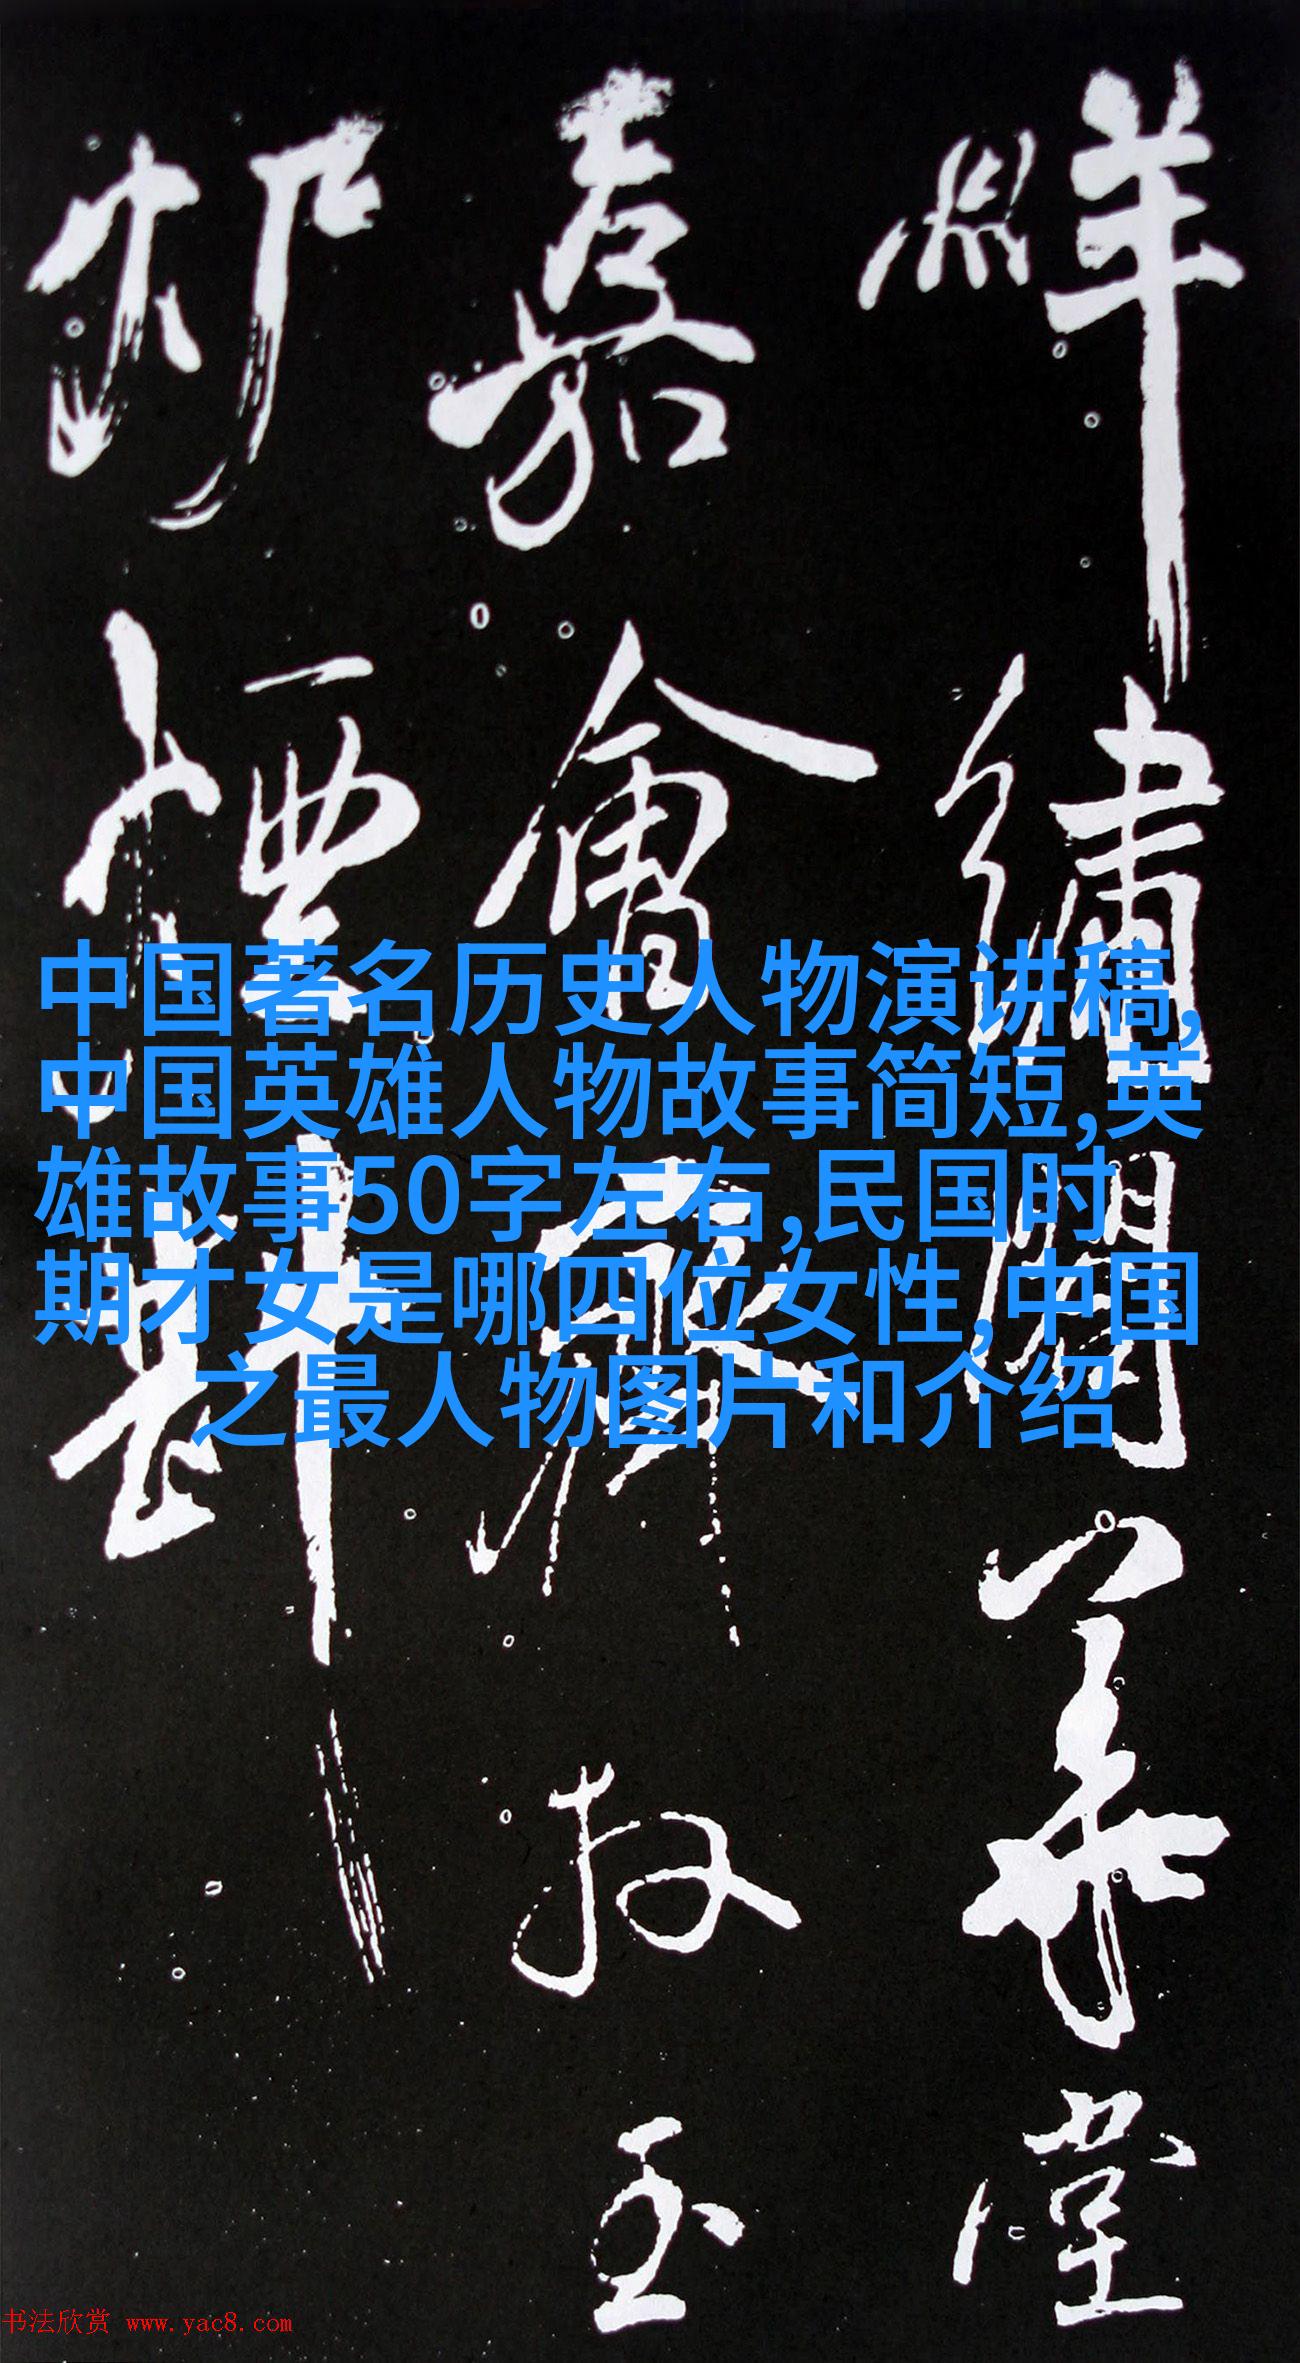 中国著名历史人物演讲稿,
中国英雄人物故事简短,英
雄故事50字左右,民国时
期才女是哪四位女性,中国
之最人物图片和介绍
繡閣華堂
嘉會
玉
斟
书法欣赏 www.yac8.com